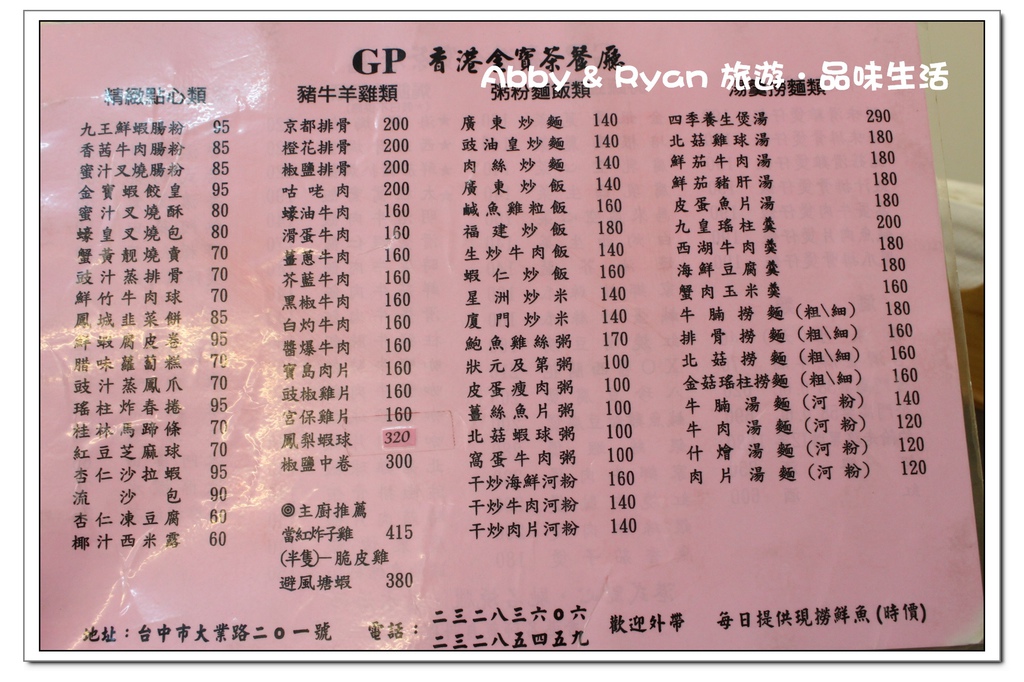 GP 香港金寶茶餐廳
Abby & Ryan 旅遊・品味生活
精緻點心類
九王鮮蝦腸粉 95
香茜牛肉腸粉 85
蜜汁叉燒腸粉 85
金寶蝦餃皇 95
蜜汁叉燒酥 80
蠔皇叉燒包 80
蟹黃靚燒賣 70
豉汁蒸排骨 70
鮮竹牛肉球 70
鳳城韭菜餅 85
鮮蝦腐皮卷 95
腊味蘿蔔糕 70
豉汁蒸鳳爪 70
瑤柱炸春捲 95
桂林馬蹄條 70
紅豆芝麻球 70
杏仁沙拉蝦 95
流沙包 90
杏仁凍豆腐 60
椰汁西米露 60
豬牛羊雞類
京都排骨 200
橙花排骨 200
椒鹽排骨 200
咕咾肉 200
蠔油牛肉 160
滑蛋牛肉 160
薑蔥牛肉 160
芥藍牛肉 160
黑椒牛肉 160
白灼牛肉 160
醬爆牛肉 160
寶島肉片 160
豉椒雞片 160
宮保雞片 160
鳳梨蝦球 320
椒鹽中卷 300
◎主廚推薦
當紅炸子雞 415
(半隻)一脆皮雞
避風塘蝦 380
粥粉麵飯類
廣東炒麵 140
豉油皇炒麵 140
肉絲炒麵 140
廣東炒飯 140
鹹魚雞粒飯 160
福建炒飯 180
生炒牛肉飯 140
蝦仁炒飯 160
星洲炒米 140
廈門炒米 140
鮑魚雞絲粥 170
狀元及第粥 100
皮蛋瘦肉粥 100
薑絲魚片粥 100
北菇蝦球粥 100
窩蛋牛肉粥 100
干炒海鮮河粉 160
干炒牛肉河粉 140
干炒肉片河粉 140
湯羹撈麵類
四季養生煲湯 290
北菇雞球湯 180
鮮茄牛肉湯 180
鮮茄豬肝湯 180
皮蛋魚片湯 180
九皇瑤柱羹 200
西湖牛肉羹 180
海鮮豆腐羹 180
蟹肉玉米羹 160
牛腩撈麵(粗\細) 180
排骨撈麵(粗\細) 160
北菇撈麵(粗\細) 160
金菇瑤柱撈麵(粗\細) 160
牛腩湯麵(河粉) 140
牛肉湯麵(河粉) 120
什燴湯麵(河粉) 120
肉片湯麵(河粉) 120
地址：台中市大業路二0一號
電話：二三二八三六0六
二三二八五四五九
歡迎外帶
每日提供現撈鮮魚(時價)